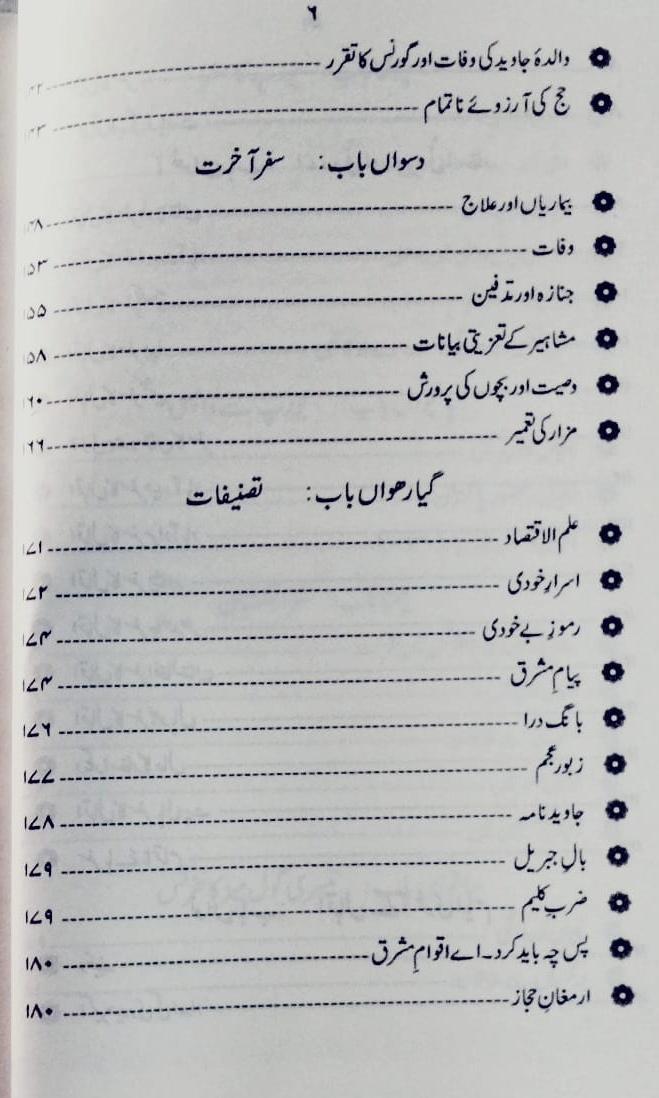 ۶
والدۂ جاوید کی وفات اور گورنس کا تقرر ---------------
حج کی آرزوئے ناتمام --------------- ۱۴۳
دسواں باب: سفر آخرت
بیماریاں اور علاج --------------- ۱۴۸
وفات --------------- ۱۵۳
جنازہ اور تدفین --------------- ۱۵۵
مشاہیر کے تعزیتی بیانات --------------- ۱۵۸
وصیت اور بچوں کی پرورش --------------- ۱۶۰
مزار کی تعمیر --------------- ۱۶۶
گیارھواں باب: تصنیفات
علم الاقتصاد --------------- ۱۷۱
اسرارِ خودی --------------- ۱۷۲
رموزِ بے خودی --------------- ۱۷۴
پیامِ مشرق --------------- ۱۷۴
بانگ درا --------------- ۱۷۶
زبور عجم --------------- ۱۷۷
جاوید نامہ --------------- ۱۷۸
بالِ جبریل --------------- ۱۷۹
ضربِ کلیم --------------- ۱۷۹
پس چہ باید کرد۔ اے اقوامِ مشرق --------------- ۱۸۰
ارمغانِ حجاز --------------- ۱۸۰